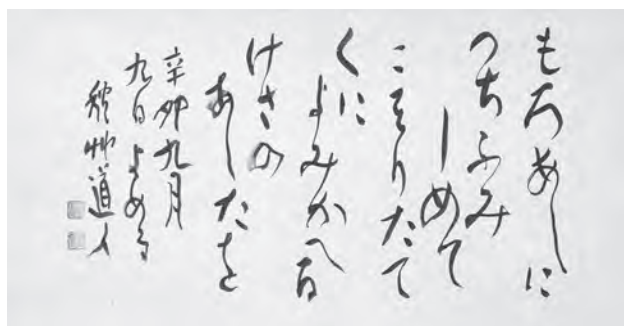 もろあしに
つちふみ
しめて
こそりたて
くに
よみかへる
けさの
あしたを
辛卯九月
九日よめる
穐艸道人